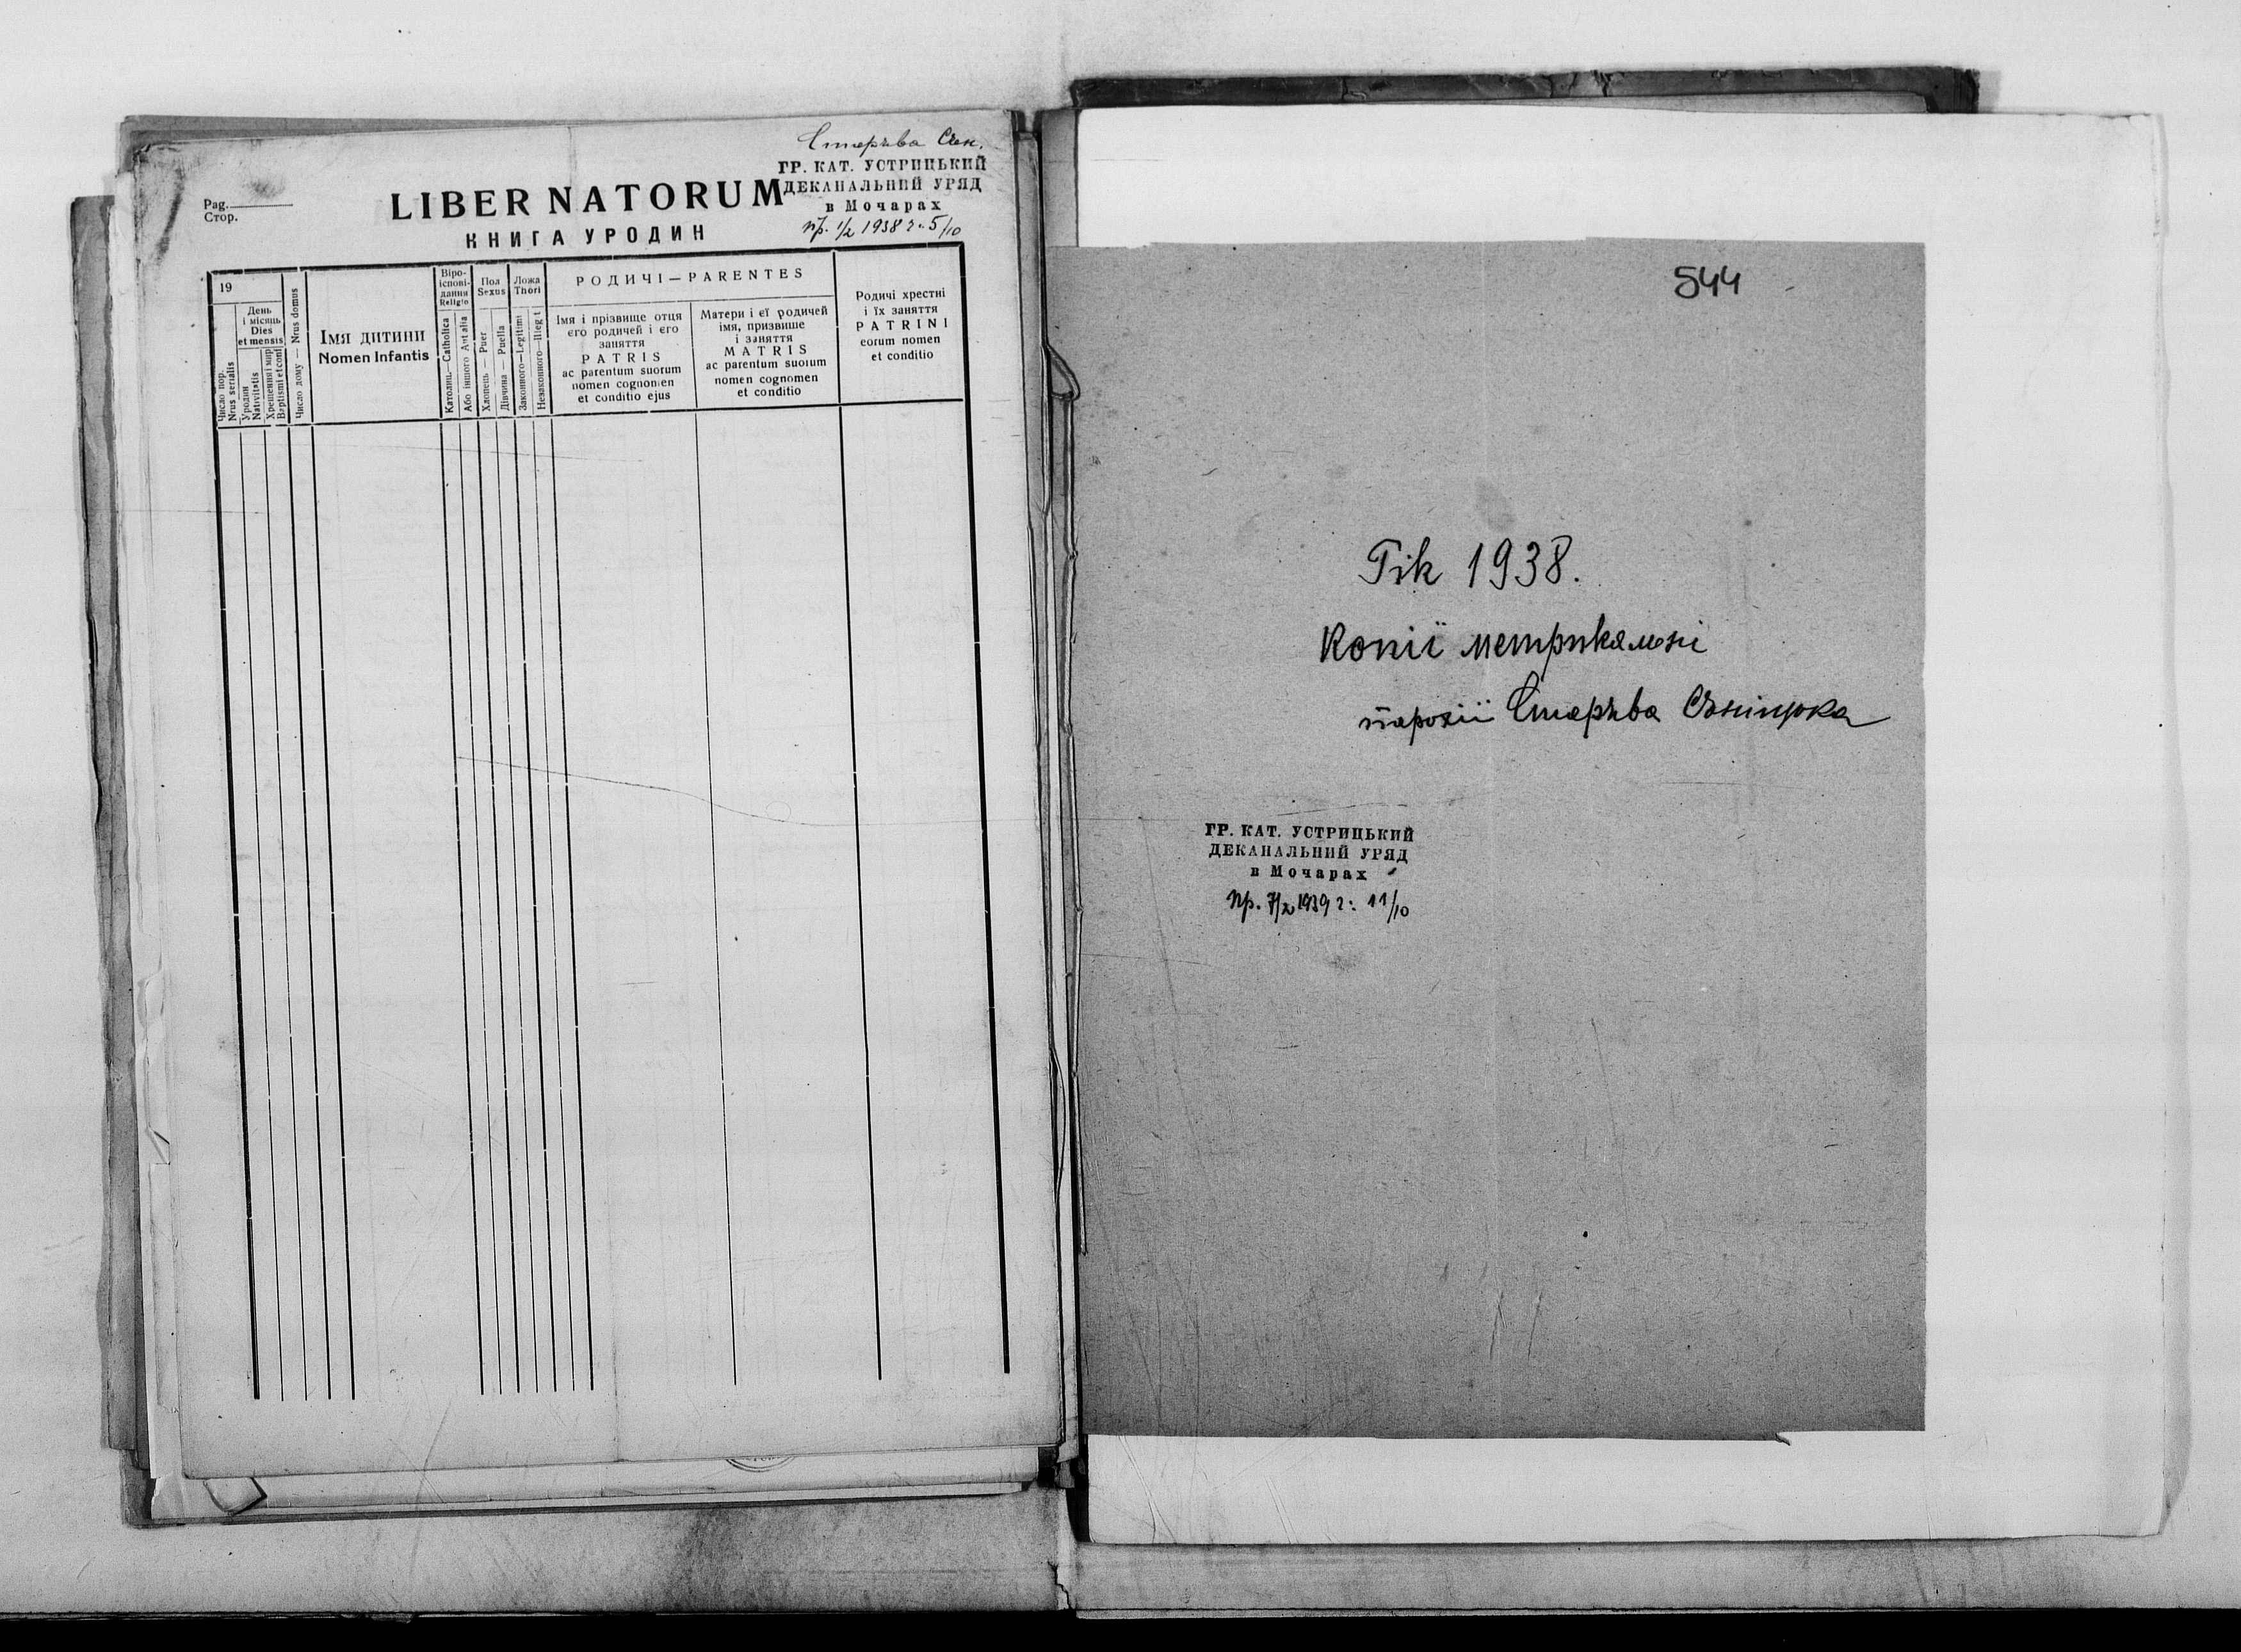 Стерява Сян.
ГР. КАТ. УСТРИЦЬКИЙ
ДЕКАНАЛЬНИЙ УРЯД
в Мочарах
пр. 1/2 1938 г. 5/10
Pag.
Стор.
LIBER NATORUM
КНИГА УРОДИН
19
Число пор.
Nrus serialis
День
і місяць
Dies
et mensis
Уродин
Nativitatis
Хрещення і мир
Baptismi et conf
Число дому — Nrus domus
Імя дитини
Nomen Infantis
Віро-
іспові-
дання
Religio
Католиц.—Catholica
Або іншого Aut alia
Пол
Sexus
Хлопець — Puer
Дівчина — Puella
Ложа
Thori
Законного—Legitimi
Незаконного—Illegit
РОДИЧІ — PARENTES
Імя і прізвище отця
єго родичей і єго
заняття
PATRIS
ac parentum suorum
nomen cognomen
et conditio ejus
Матери і єї родичей
імя, призвище
і заняття
MATRIS
ac parentum suorum
nomen cognomen
et conditio
Родичі хрестні
і їх заняття
PATRINI
eorum nomen
et conditio
544
Рік 1938.
Копії метрикальні
парохії Стерява Сяніцка
ГР. КАТ. УСТРИЦЬКИЙ
ДЕКАНАЛЬНИЙ УРЯД
в Мочарах
Пр. 7/2 1939 г: 11/10